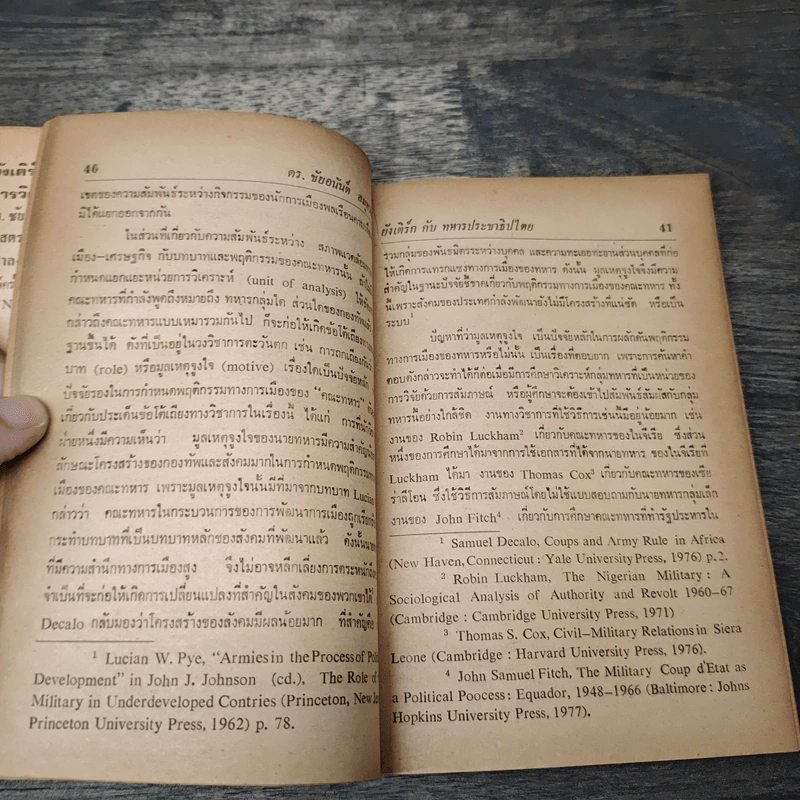 46
ดร. ชัยอนันต์
เขตของความสัมพันธ์ระหว่างกิจกรรมของนักการเมืองพลเรือน
มิได้แยกออกจากกัน
ในส่วนที่เกี่ยวกับความสัมพันธ์ระหว่าง สภาพแวดล้อมทาง
เมือง-เศรษฐกิจ กับบทบาทและพฤติกรรมของคณะทหารนั้น
กำหนดแยกแยะหน่วยการวิเคราะห์ (unit of analysis) ให้
คณะทหารที่กำลังพูดถึงหมายถึง ทหารกลุ่มใด ส่วนใดของกองทัพ
กล่าวถึงคณะทหารแบบเหมารวมกันไป ก็จะก่อให้เกิดข้อโต้เถียง
ฐานขึ้นได้ ดังที่เป็นอยู่ในวงวิชาการตะวันตก เช่น การถกเถียงกัน
บาท (role) หรือมูลเหตุจูงใจ (motive) เรื่องใดเป็นปัจจัยหลัก
ปัจจัยรองในการกำหนดพฤติกรรมทางการเมืองของ “คณะทหาร”
เกี่ยวกับประเด็นข้อโต้เถียงทางวิชาการในเรื่องนี้ ได้แก่ การที่
ฝ่ายหนึ่งมีความเห็นว่า มูลเหตุจูงใจของนายทหารมีความสำคัญ
ลักษณะโครงสร้างของกองทัพและสังคมมากในการกำหนดพฤติกรรม
เมืองของคณะทหาร เพราะมูลเหตุจูงใจนั้นมีที่มาจากบทบาท Lucian
กล่าวว่า คณะทหารในกระบวนการของการพัฒนาการเมืองถูกเรียก
กระทำบทบาทที่เป็นบทบาทหลักของสังคมที่พัฒนาแล้ว ดังนั้น
ที่มีความสำนึกทางการเมืองสูง จึงไม่อาจหลีกเลี่ยงการตระหนัก
จำเป็นที่จะก่อให้เกิดการเปลี่ยนแปลงที่สำคัญในสังคมของพวกเขาได้
Decalo กลับมองว่าโครงสร้างของสังคมมีผลน้อยมาก ที่สำคัญคือ
1 Lucian W. Pye, “Armies in the Process of
Development” in John J. Johnson (cd.), The Role of
Military in Underdeveloped Contries (Princeton, New
Princeton University Press, 1962) p. 78.
ยังเติร์ก กับ ทหารประชาธิปไตย 41
รวมกลุ่มของพันธมิตรระหว่างบุคคล และความทะเยอทะยานส่วนบุคคลที่ก่อ
ให้เกิดการแทรกแซงทางการเมืองของทหาร ดังนั้น มูลเหตุจูงใจจึงมีความ
สำคัญในฐานะปัจจัยชี้ขาดเกี่ยวกับพฤติกรรมทางการเมืองของคณะทหาร ทั้ง
นี้เพราะสังคมของประเทศกำลังพัฒนายังไม่มีโครงสร้างที่แน่ชัด หรือเป็น
ระบบ1
ปัญหาที่ว่ามูลเหตุจูงใจ เป็นปัจจัยหลักในการผลักดันพฤติกรรม
ทางการเมืองของทหารหรือไม่นั้น เป็นเรื่องที่ตอบยาก เพราะการค้นหาคำ
ตอบดังกล่าวจะทำได้ก็ต่อเมื่อมีการศึกษาวิเคราะห์กลุ่มทหารที่เป็นหน่วยของ
การวิจัยด้วยการสัมภาษณ์ หรือผู้ศึกษาจะต้องเข้าไปสัมพันธ์สัมผัสกับกลุ่ม
ทหารนี้อย่างใกล้ชิด งานทางวิชาการที่ใช้วิธีการเช่นนี้มีอยู่น้อยมาก เช่น
งานของ Robin Luckham2 เกี่ยวกับคณะทหารของไนจีเรีย ซึ่งส่วน
หนึ่งของการศึกษาได้มาจากการใช้เอกสารที่ได้จากนายทหาร ของไนจีเรียที่
Luckham ได้มา งานของ Thomas Cox3 เกี่ยวกับคณะทหารของเซีย
ร่าลีโอน ซึ่งใช้วิธีการสัมภาษณ์โดยไม่ใช้แบบสอบถามกับนายทหารกลุ่มเล็ก
งานของ John Fitch4 เกี่ยวกับการศึกษาคณะทหารที่ทำรัฐประหารใน
1 Samuel Decalo, Coups and Army Rule in Africa
(New Haven, Connecticut : Yale University Press, 1976) p. 2.
2 Robin Luckham, The Nigerian Military : A
Sociological Analysis of Authority and Revolt 1960–67
(Cambridge : Cambridge University Press, 1971)
3 Thomas S. Cox, Civil–Military Relations in Siera
Leone (Cambridge : Harvard University Press, 1976).
4 John Samuel Fitch, The Military Coup d'Etat as
a Political Poocess: Equador, 1948–1966 (Baltimore : Johns
Hopkins University Press, 1977).